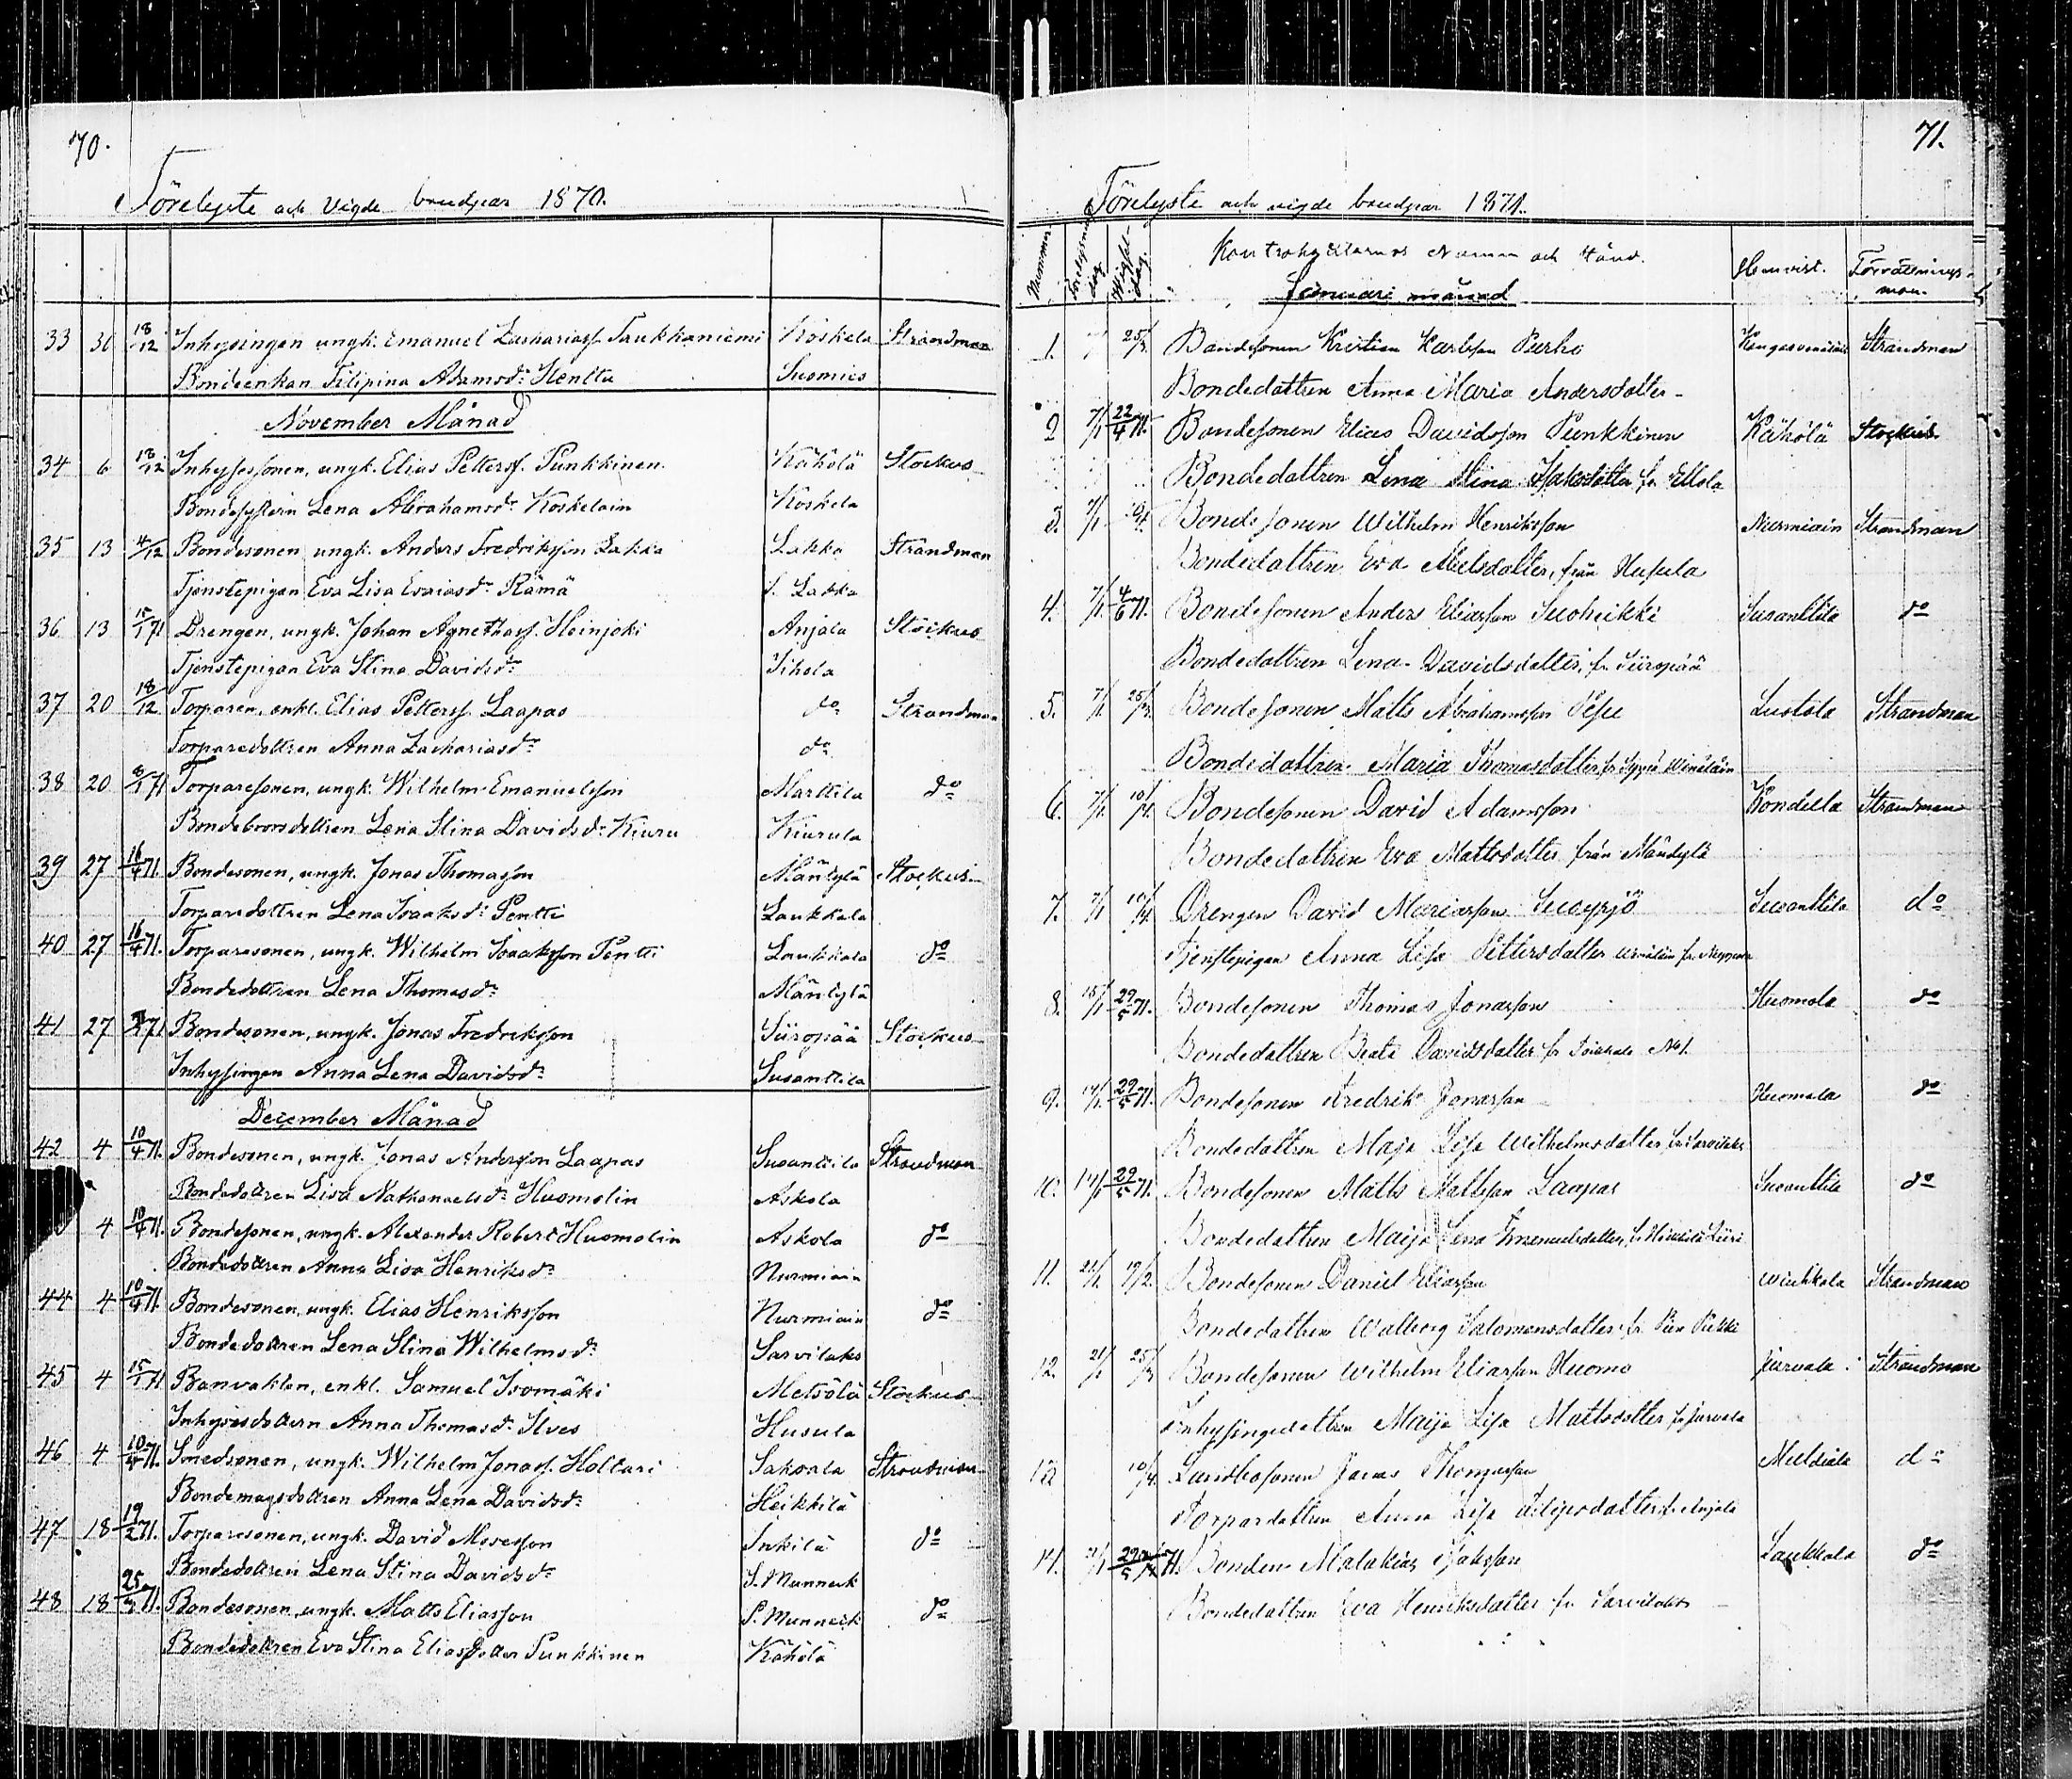 70.
Förelyste och Vigde brudpar 1870.
33 30 18/12 Inhysingen ungk. Emanuel Zachariass. Taukkaniemi Koskela Strandman
Bondeenkan Filipina Adamsdr Henttu Suomies
November Månad
34 6 18/12 Inhysessonen, ungk. Elias Petterss. Punkkinen Kähölä Stockus
Bondesystern Lena Abrahamsdr Koskelain Koskela
35 13 4/12 Bondesonen, ungk. Anders Fredriksson Lakka Lakka Strandman
Tjenstepigan Eva Lisa Esaiasdr Rämä S. Lakka
36 13 15/1 71 Drengen, ungk. Johan Agnethass. Hoinjoki Anjala Stockus
Tjenstepigan Eva Stina Davidsdr Sihola
37 20 18/12 Torparen, enkl. Elias Petterss. Laapas do Strandman
Torparedottren Anna Zachariasdr do
38 20 8/1 71 Torparesonen, ungk. Wilhelm Emanuelsson Marttila do
Bondebrorsdottren Lena Stina Davidsdr Kiuru Kiurula
39 27 16/4 71. Bondesonen, ungk. Jonas Thomasson Mäntylä Stockus
Torparedottren Lena Isaaksdr Pentti Laukkala
40 27 16/4 71. Torparesonen, ungk. Wilhelm Isaaksson Pentti Laukkala do
Bondedottren Lena Thomasdr Mäntylä
41 27 71 Bondesonen, ungk. Jonas Fredriksson Siiropää Stockus
Inhysingen Anna Lena Davidsdr Susanttila
December Månad
42 4 10/4 71. Bondesonen, ungk. Jonas Andersson Laapas Susanttila Strandman
Bondedottren Lisa Nathanaelsdr Huomolin Askola
4 10/4 71. Bondesonen, ungk. Alexander Robert Huomolin Askola do
Bondedottren Anna Lisa Henriksdr Nurmiain
44 4 10/4 71. Bondesonen, ungk. Elias Henriksson Nurmiain do
Bondedottren Lena Stina Wilhelmsdr Sarvilaks
45 4 15/1 71 Banvakten, enkl. Samuel Isomäki Metsölä Stockus
Inhysesdottern Anna Thomasdr Ilves Husula
46 4 10/4 71. Smedsonen, ungk. Wilhelm Jonass. Holtari Sakoala Strandman
Bondemågsdottren Anna Lena Davidsdr Heikkilä
47 18 19/2 71. Torparesonen, ungk. David Mosesson Inkilä do
Bondedottren Lena Stina Davidsdr S. Munneck
48 18 25/3 71. Bondesonen, ungk. Matts Eliasson S. Munneck do
Bondedottren Eva Stina Eliasdotter Punkkinen Kähölä
71.
Förelyste och vigde brudpar 1871.
Nummer Förelysnings dag Wigsel-dag. Kontrahenternas Namn och stånd. Hemvist. Förrättnings-man.
Januari månad
1. 25/3 Bondesonen Kristian Karlsson Purho Strandman
Bondedottren Anna Maria Andersdotter
2 7/1 22/4 71. Bondesonen Elias Davidsson Punkkinen Kähölä Stockus
Bondedottren Lena Stina Isaksdotter fr Ellola
3. 7/1 10/4 Bondesonen Wilhelm Henriksson Nurmiain Strandman
Bondedottren Eva Abelsdotter, från Husula
4. 7/1 4/6 71. Bondesonen Anders Eliasson Suoheikki Susanttila do
Bondedottren Lena Davidsdotter, fr Siiropää
5. 7/1 25/3 Bondesonen Matts Abrahamsson Pesu Luotola Strandman
Bondedottren Maria Thomasdotter fr
6. 7/1 10/4. Bondesonen David Adamsson Kondilla Strandman
Bondedottren Eva Mattsdotter från Mändylä
7. 7/1 10/4 Drengen David Mariasson Suurpyöj Susanttila do
Tjenstepigan Anna Lisa Pettersdotter
8. 15/1 29/5 71. Bondesonen Thomas Jonasson Huomola do
Bondedottren Beata Davidsdotter fr No 1.
9. 14/1 29/5 71. Bondesonen Fredrik Jonasson Huomola do
Bondedottren Maja Lisa Wilhelmsdotter fr Sarvilaks
10. 14/1 29/5 71. Bondesonen Matts Mattsson Laapas Susanttila do
Bondedottren Maija Lena Emanuelsdotter, fr
11. 21/1 19/2. Bondesonen Daniel Eliasson Winkkola Strandman
Bondedottren Walborg Salomonsdotter, fr
12. 21/1 25/3 Bondesonen Wilhelm Eliasson Huomo Jurvala Strandman
Inhysingedottren Maija Lisa Mattsdotter fr Jurvala
13 10/4 Landbosonen Jonas Thomasson Muldiala do
Torpardottren Anna Lisa Filipsdotter fr Anjala
14. 21/1 29/5 71. Bonden Malakias Isaksson Laukkala do
Bondedottren Eva Henriksdotter fr Sarvilaks